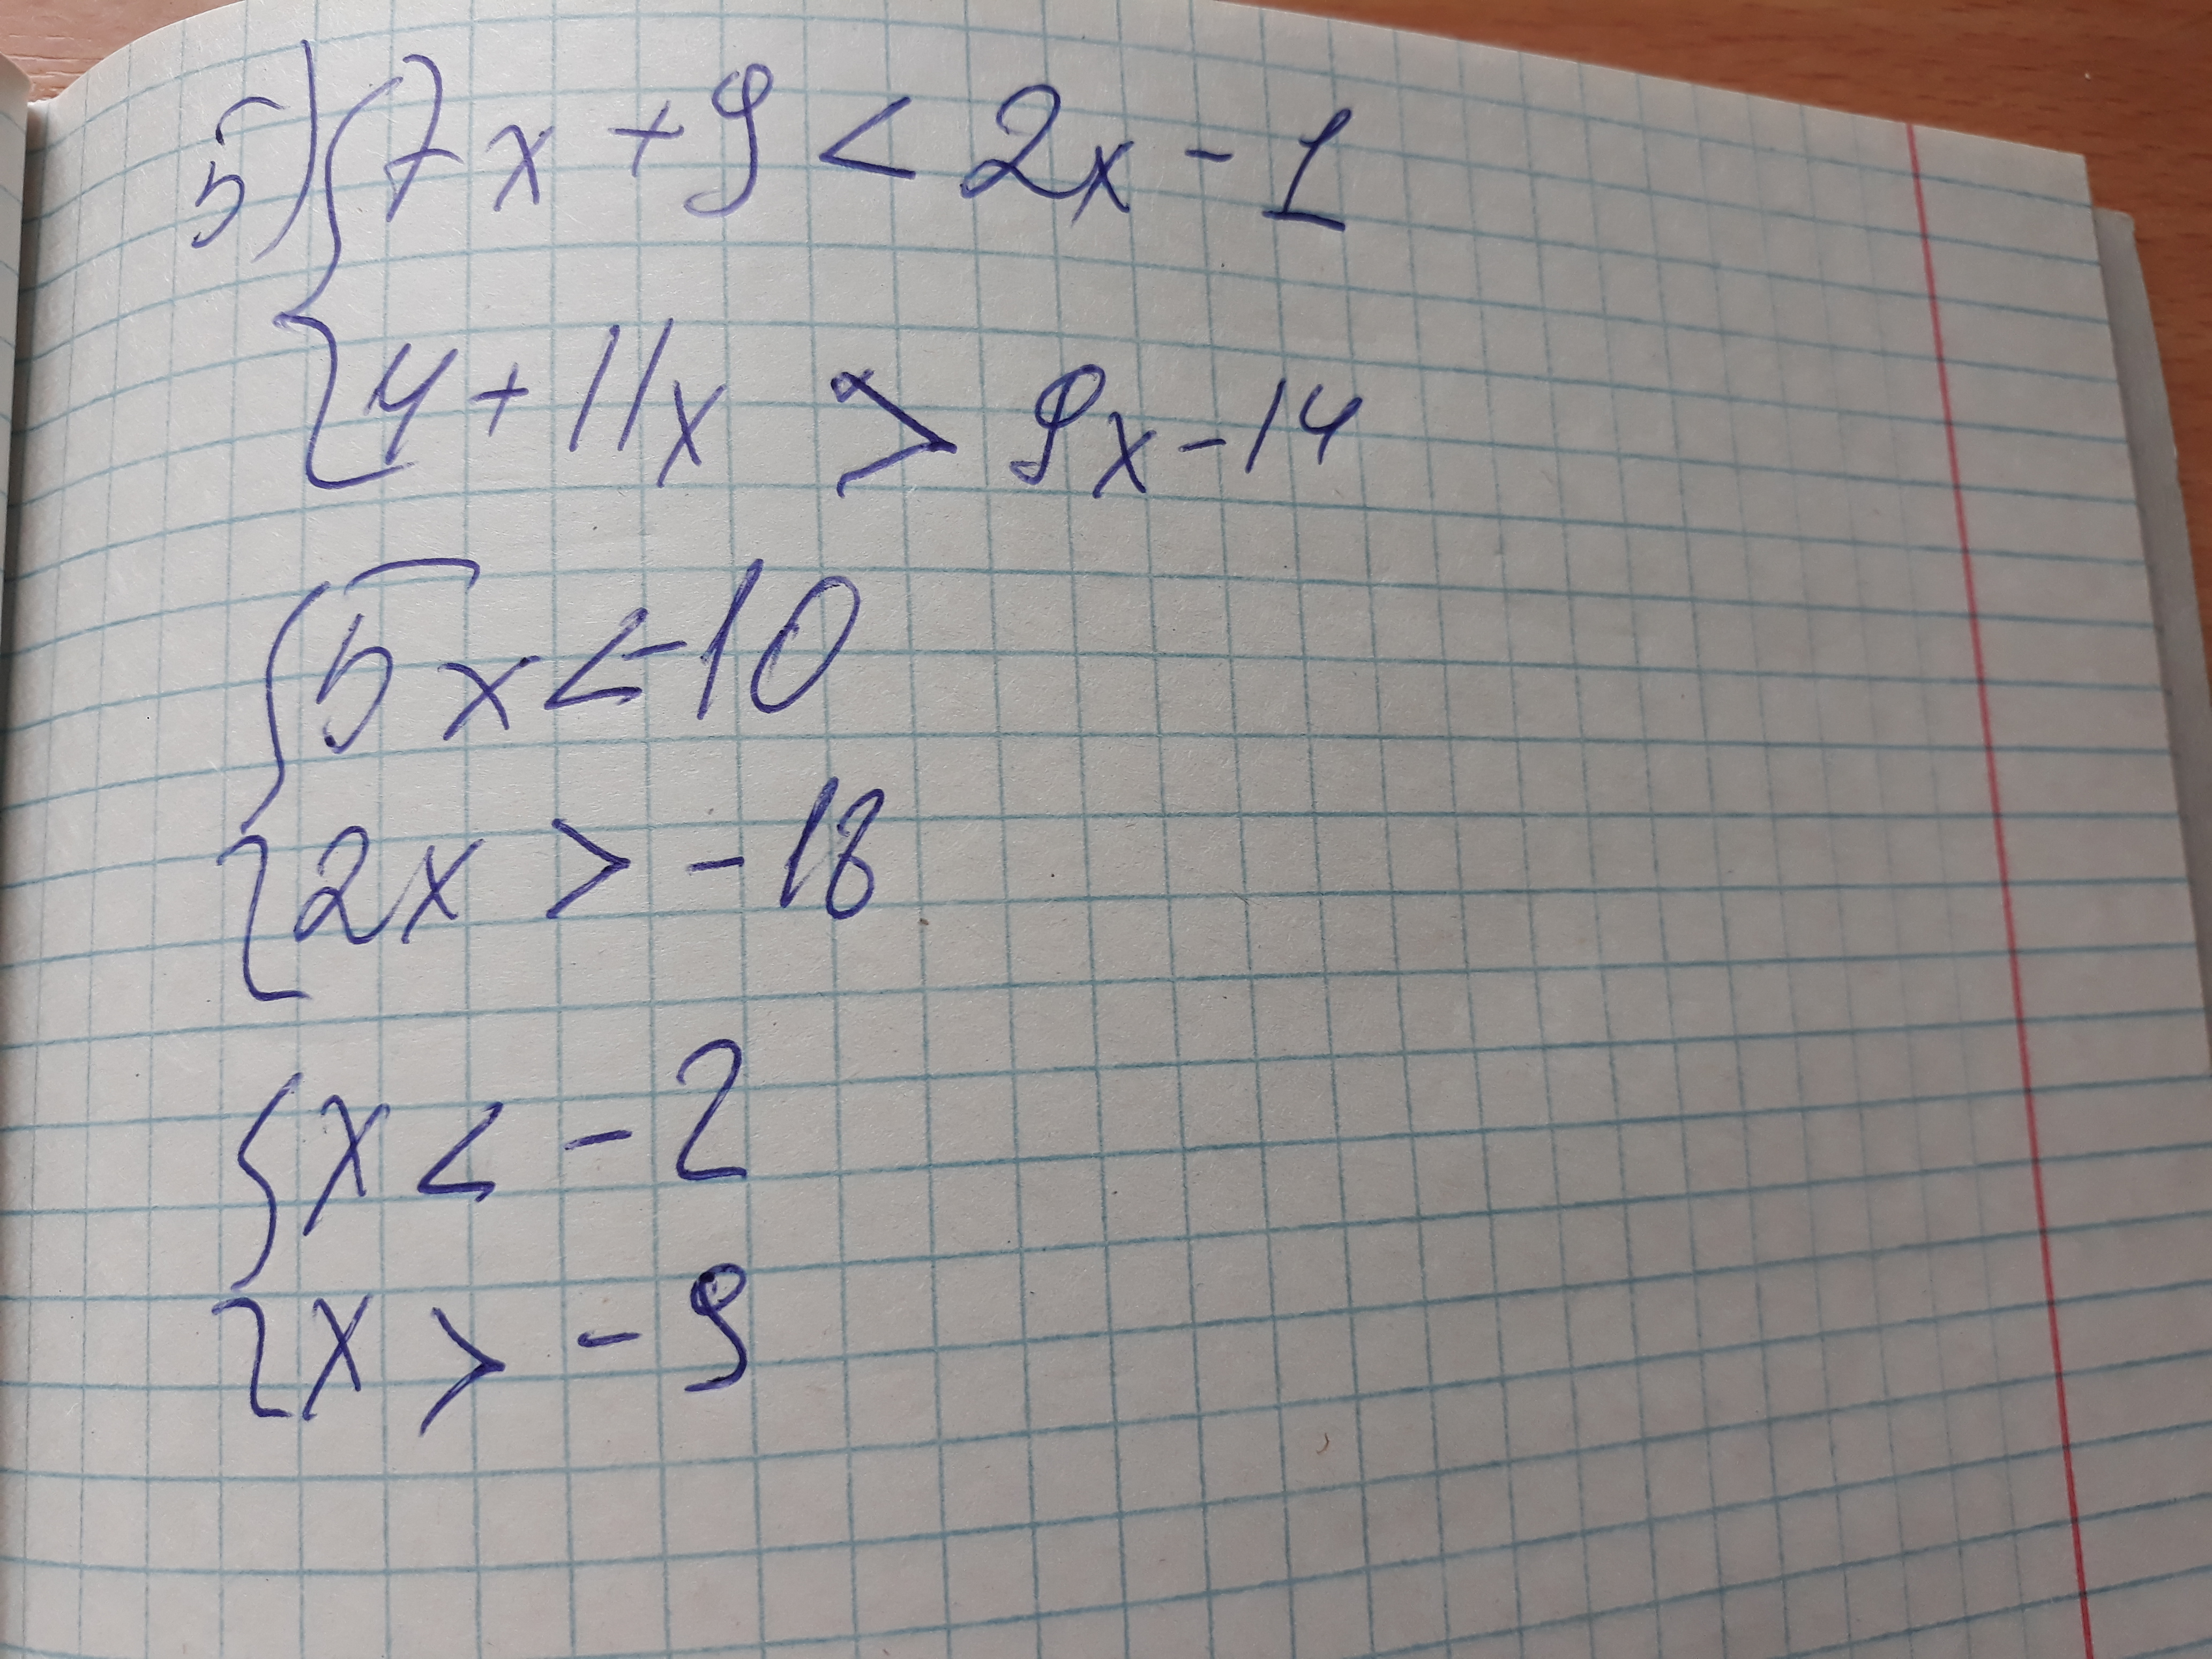 5) { 7x + 9 < 2x - 1
4 + 11x > 9x - 14
{ 5x < -10
2x > - 18
{ x < - 2
x > - 9